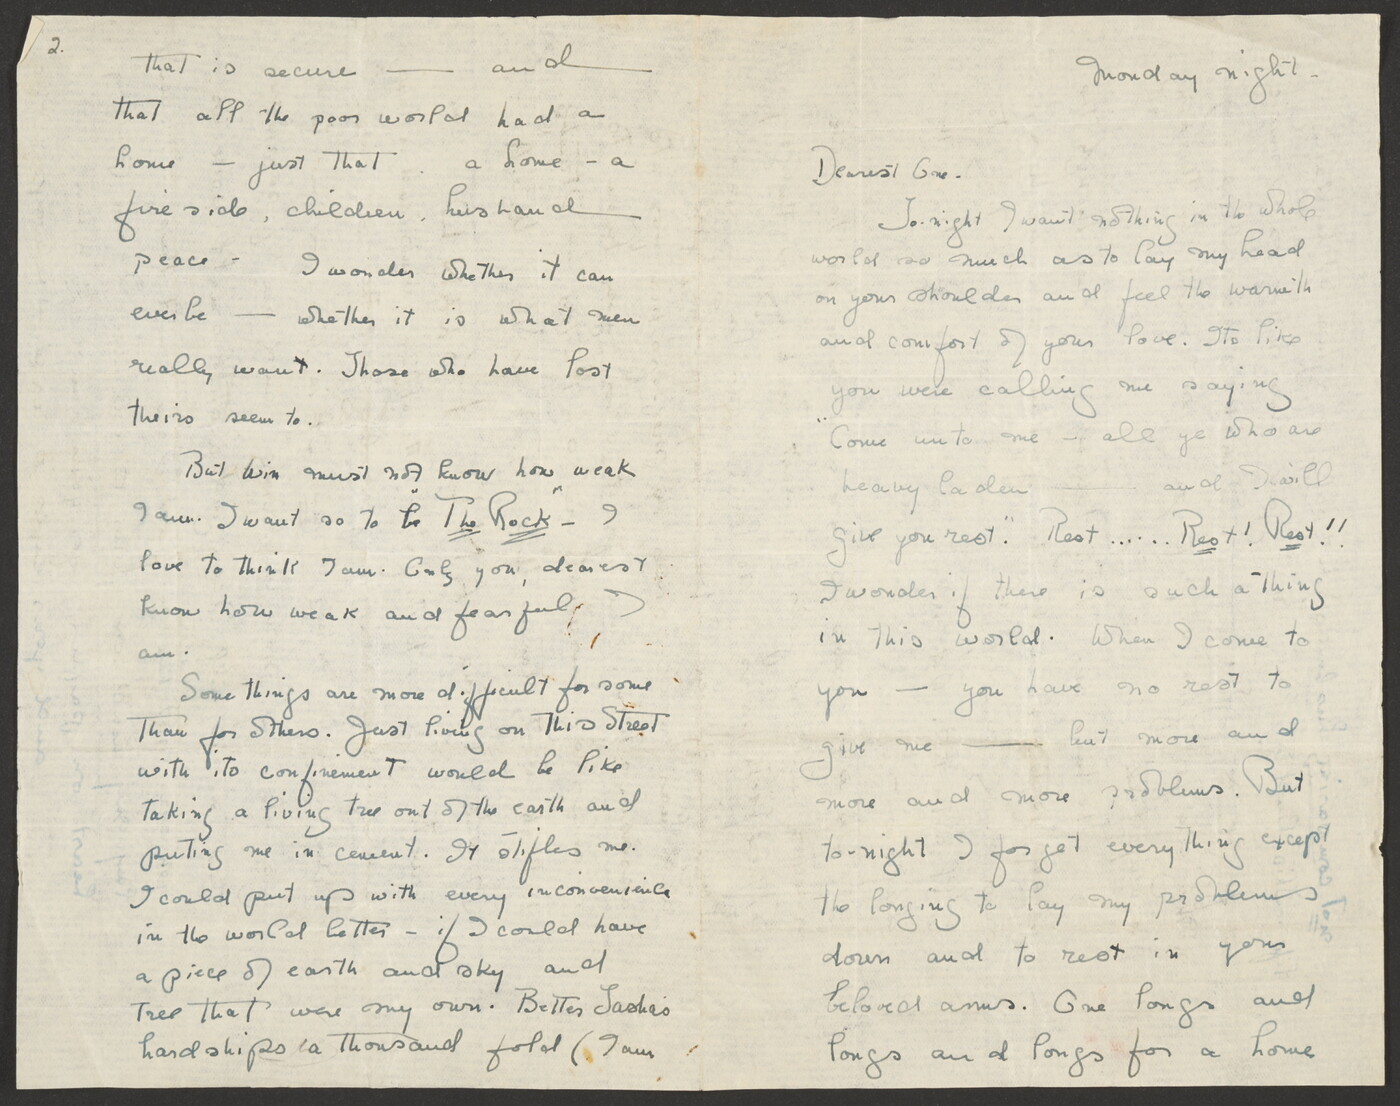 Monday night -
Dearest One.
To-night I want nothing in the whole
world so much as to lay my head
on your shoulder and feel the warmth
and comfort of your love. Its like
you were calling me saying
"Come unto me - all ye who are
heavy laden —— and I will
give you rest." Rest ...... Rest! Rest!!
I wonder if there is such a thing
in this world. When I come to
you — you have no rest to
give me —— but more and
more and more problems. But
to-night I forget everything except
the longing to lay my problems
down and to rest in your
beloved arms. One longs and
longs and longs for a home
2.
that is secure —— and ——
that all the poor world had a
home — just that . a home - a
fire side, children, husband ——
peace - I wonder whether it can
ever be — whether it is what men
really want. Those who have lost
theirs seem to.
But Win must not know how weak
I am. I want so to be "The Rock" - I
love to think I am. Only you, dearest
know how weak and fearful I
am.
Some things are more difficult for some
than for others. Just living on this street
with its confinement would be like
taking a living tree out of the earth and
puting me in cement. It stifles me.
I could put up with every inconvenience
in the world better - if I could have
a piece of earth and sky and
tree that were my own. Better Sasha's
hardships a thousand fold (I am